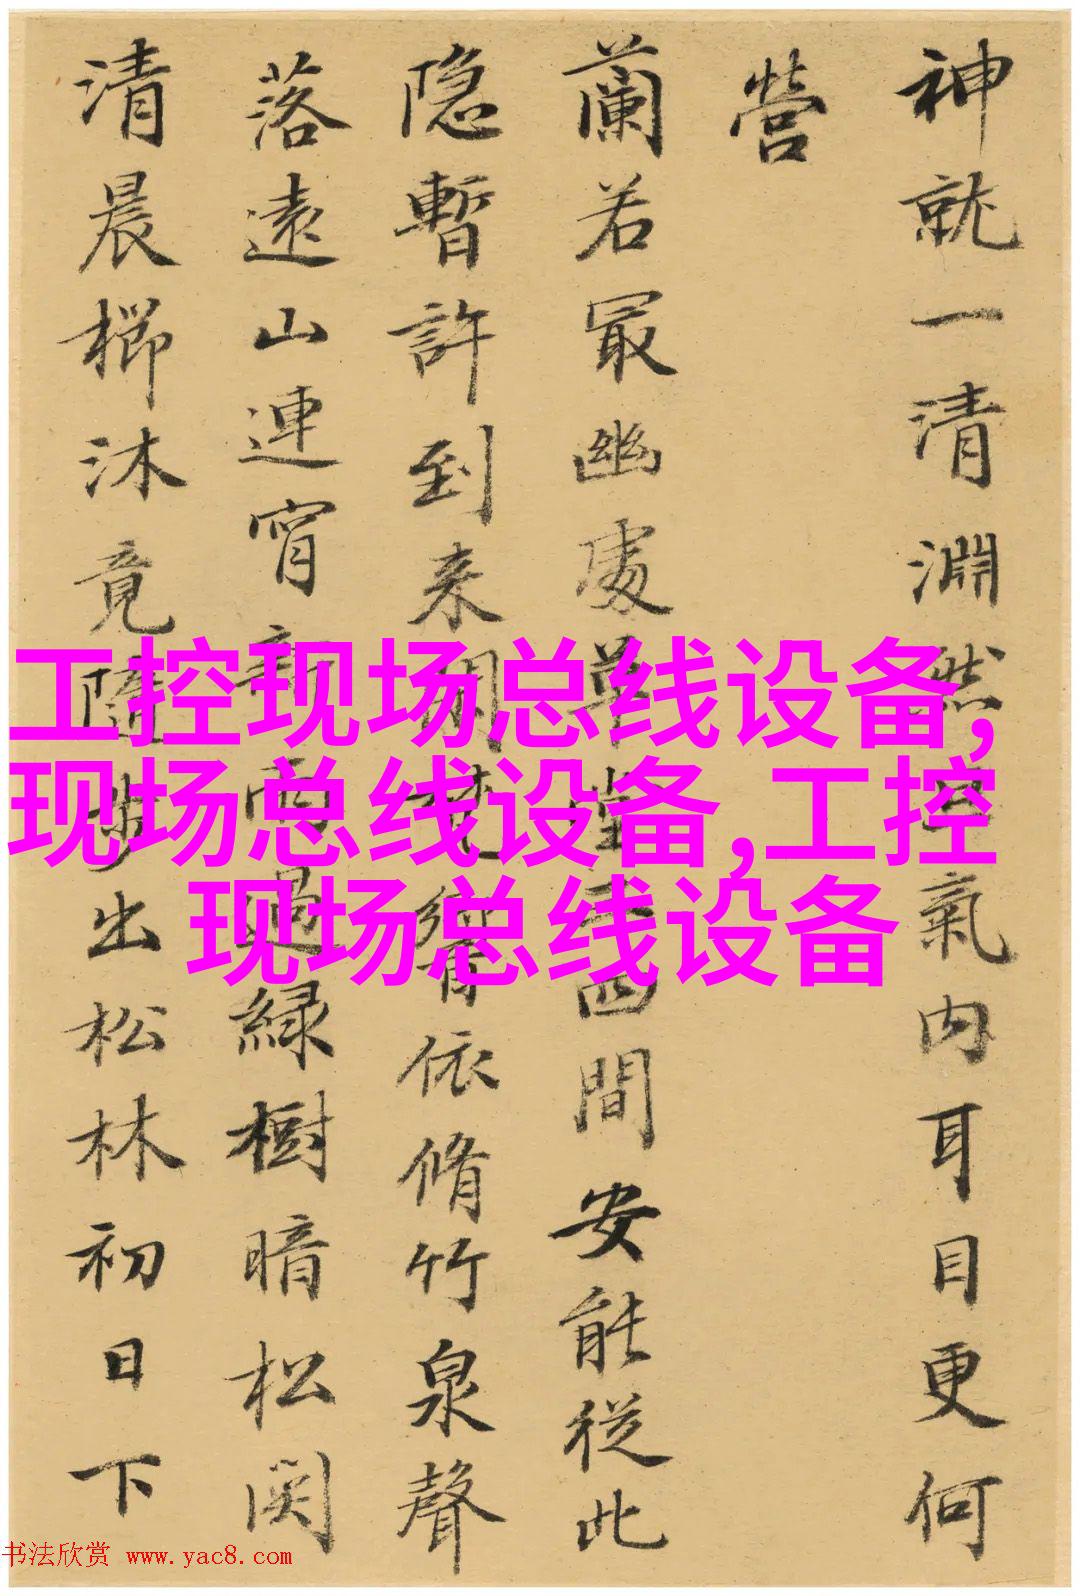 神就一清淵然□氣内耳目更何
營
蘭若冣幽處草堂□四間安能從此
隐暫許到来朝梵響依脩竹泉聲
落遠山連宵新雨過緑樹暗松関
清晨櫛沐竟隨步出松林初日下
工控现场总线设备,
现场总线设备,工控
现场总线设备
书法欣赏 www.yac8.com